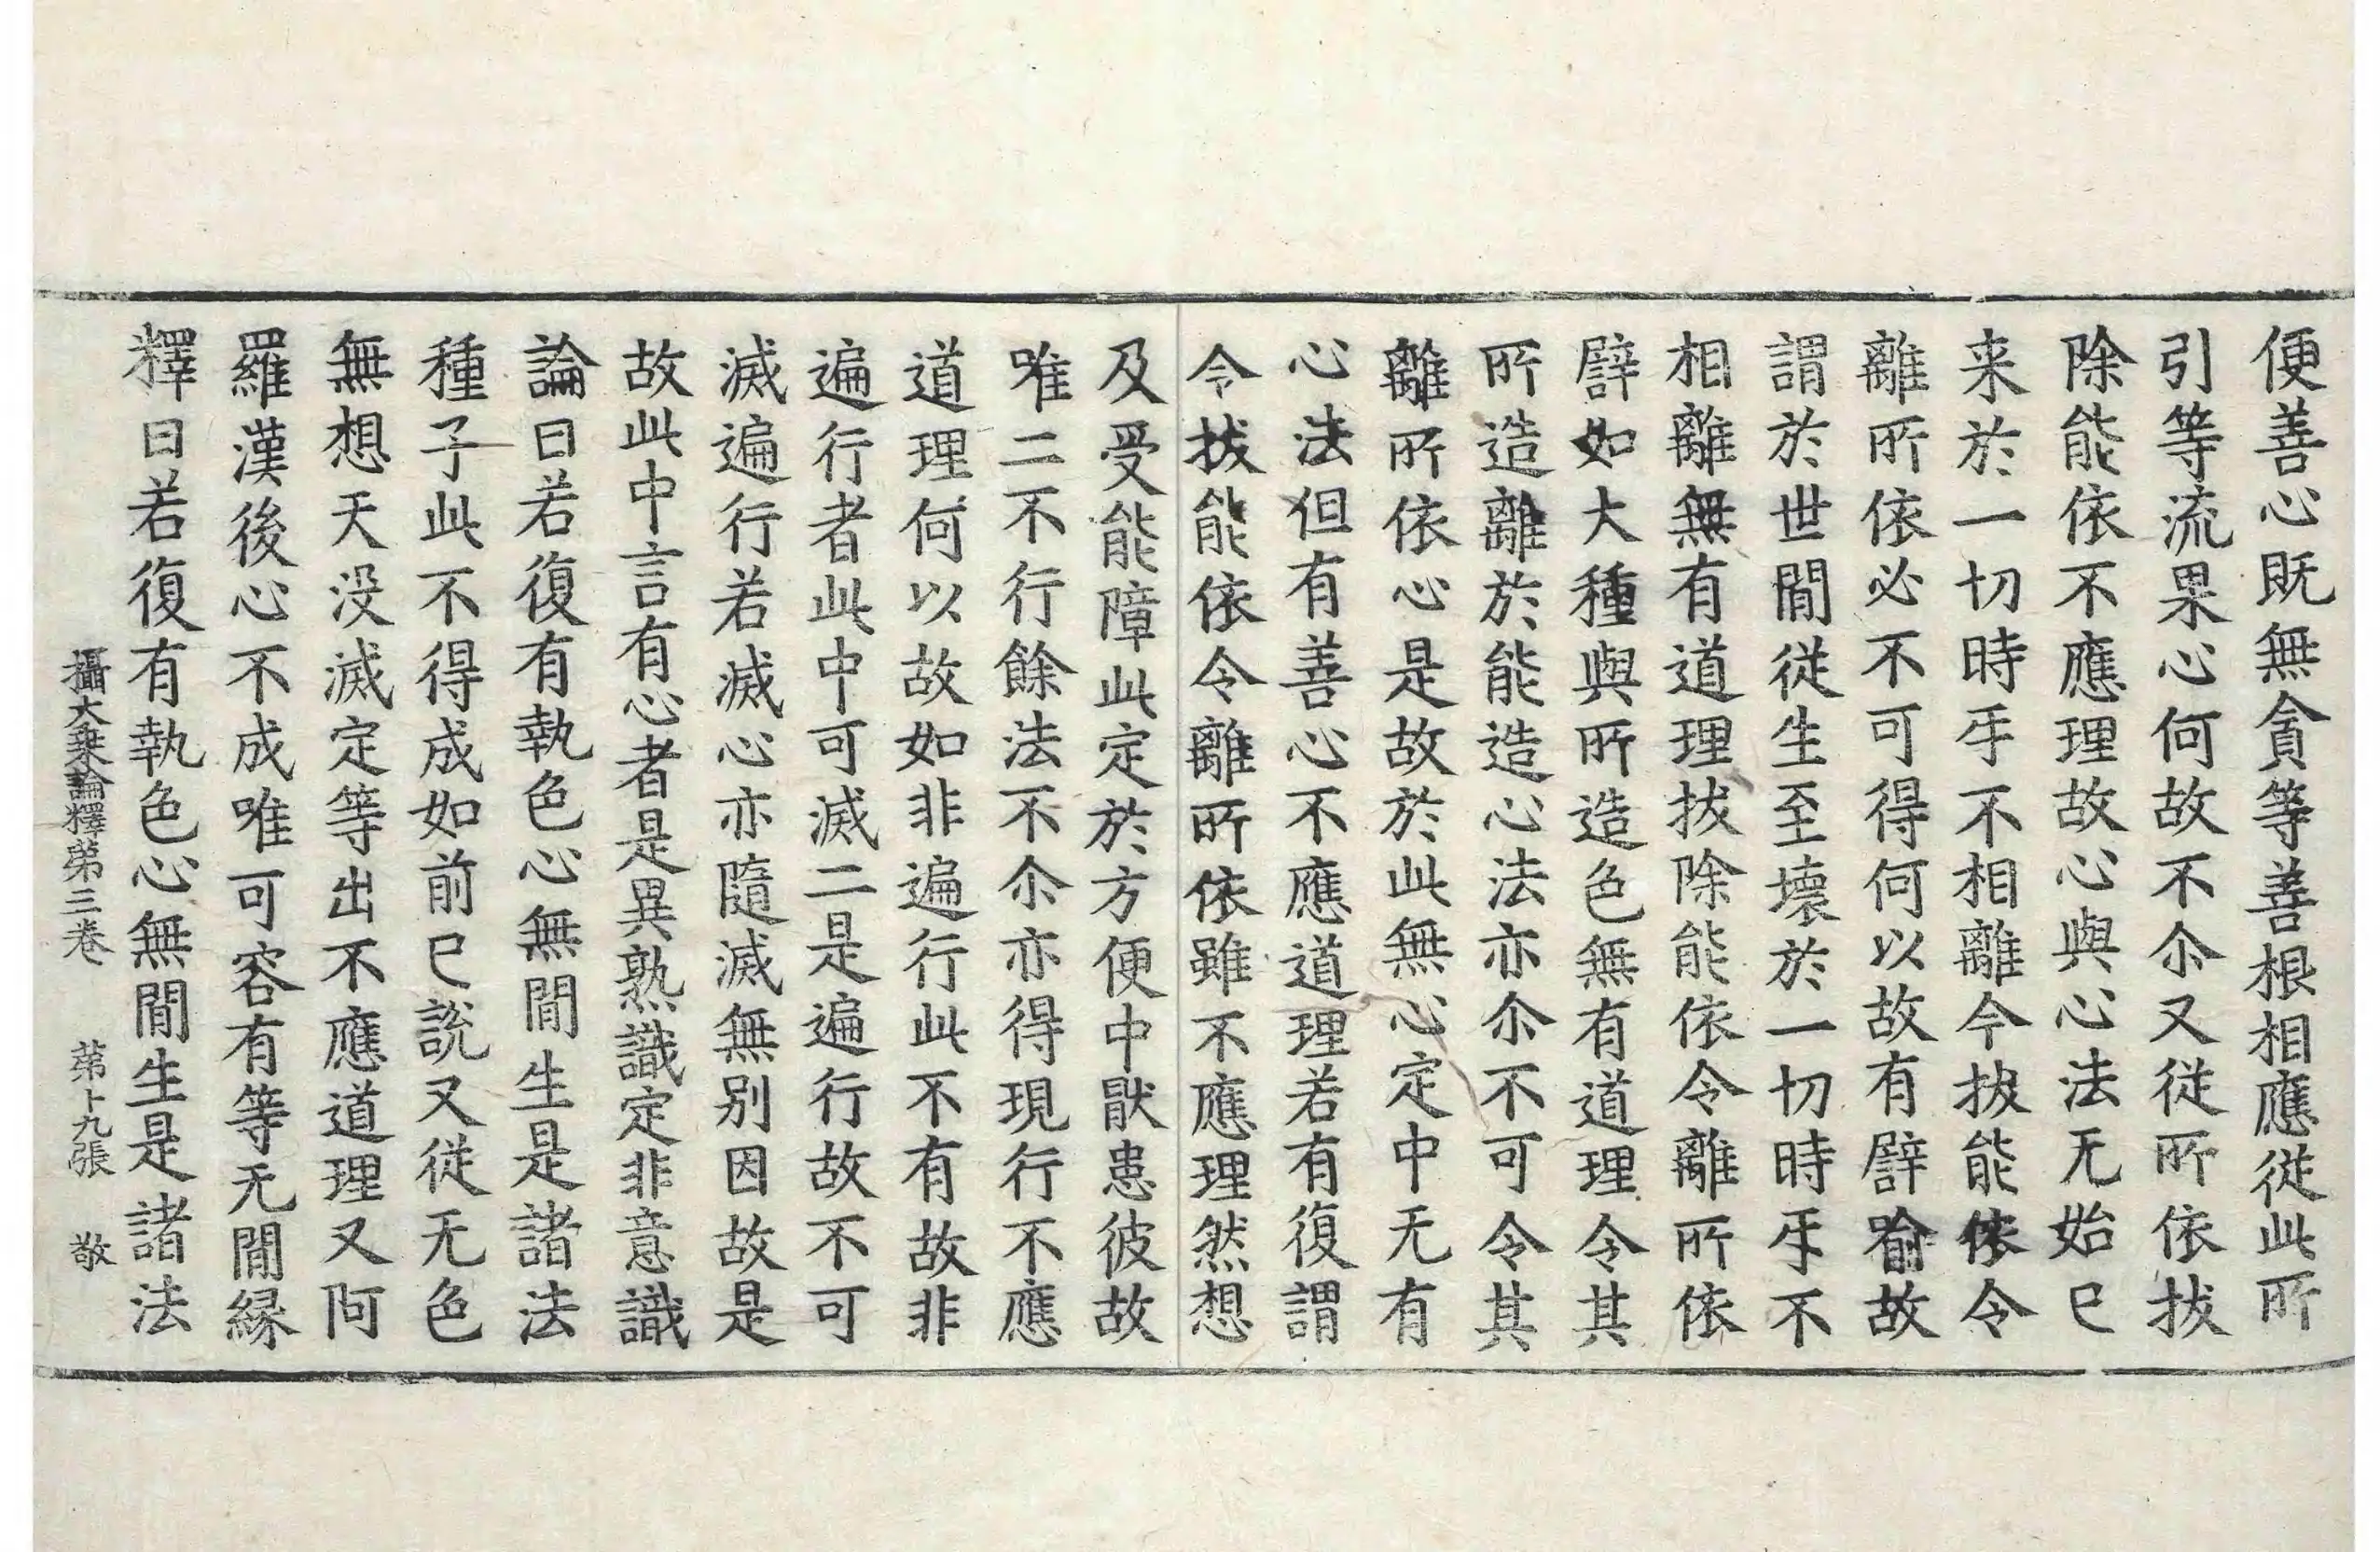 便善心既無貪等善根相應從此所
引等流果心何故不尒又從所依拔
除能依不應理故心與心法无始已
来於一切時𤓰不相離今拔能依令
離所依必不可得何以故有辟喻故
謂於世間從生至壞於一切時𤓰不
相離無有道理拔除能依令離所依
譬如大種與所造色無有道理令其
所造離於能造心法亦尒不可令其
離所依心是故於此無心定中无有
心法但有善心不應道理若有復謂
令拔能依令離所依雖不應理然想
及受能障此定於方便中猒患彼故
唯二不行餘法不尒亦得現行不應
道理何以故如非遍行此不有故非
遍行者此中可滅二是遍行故不可
滅遍行若滅心亦隨滅無別因故是
故此中言有心者是異熟識定非意識
論曰若復有執色心無間生是諸法
種子此不得成如前已說又從无色
無想天没滅定等出不應道理又阿
羅漢後心不成唯可容有等无間縁
釋曰若復有執色心無間生是諸法
攝大乗論釋苐三卷 苐十九張 敬